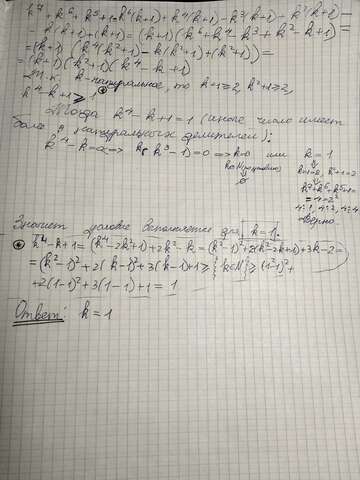 k⁷ + k⁶ + k⁵ + 1 = k⁶(k+1) + k⁴(k+1) - k³(k+1) + k²(k+1) -
- k(k+1) + (k+1) = (k+1)(k⁶ + k⁴ - k³ + k² - k + 1) =
= (k+1)(k⁴(k²+1) - k(k²+1) + (k²+1)) =
= (k+1)(k²+1)(k⁴ - k + 1)
Т.к. k - натуральное, то k+1 ≥ 2, k²+1 ≥ 2,
k⁴ - k + 1 ≥ 1 ⊛
Тогда k⁴ - k + 1 = 1 (иначе число имеет
более натуральных делителей):
k⁴ - k = 0 => k(k³ - 1) = 0 => k=0 или k = 1
k+1=2, k²+1=2
k⁷+k⁶+k⁵+1=
= 4 = 2²
4:1, 4:2, 4:4
верно.
Значит условие выполняется для k = 1.
⊛ k⁴ - k + 1 = (k⁴ - 2k² + 1) + 2k² - k = (k² - 1)² + 2(k² - 2k + 1) + 3k - 2 =
= (k² - 1)² + 2(k - 1)² + 3(k - 1) + 1 ≥ {k∈N} ≥ (1² - 1)² +
+ 2(1 - 1)² + 3(1 - 1) + 1 = 1
Ответ: k = 1